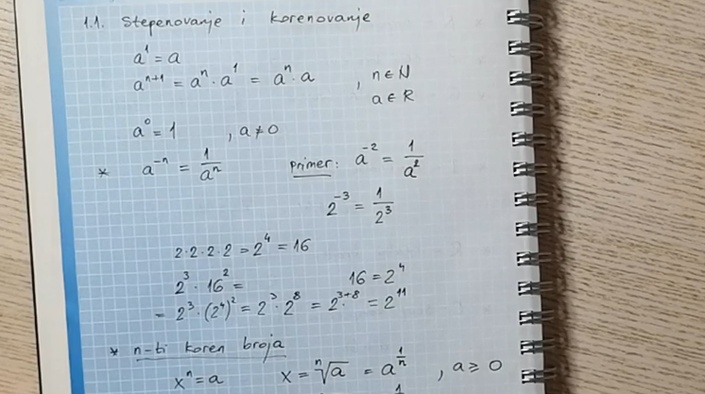 1.1. Stepenovanje i korenovanje
a¹ = a
aⁿ⁺¹ = aⁿ · a¹ = aⁿ · a , n ∈ N
a ∈ R
a⁰ = 1 , a ≠ 0
* a⁻ⁿ = 1/aⁿ primer: a⁻² = 1/a²
2⁻³ = 1/2³
2·2·2·2 = 2⁴ = 16
2³ · 16² = 16 = 2⁴
= 2³ · (2⁴)² = 2³ · 2⁸ = 2³⁺⁸ = 2¹¹
* n-ti koren broja
xⁿ = a x = ⁿ√a = a^(1/n) , a ≥ 0